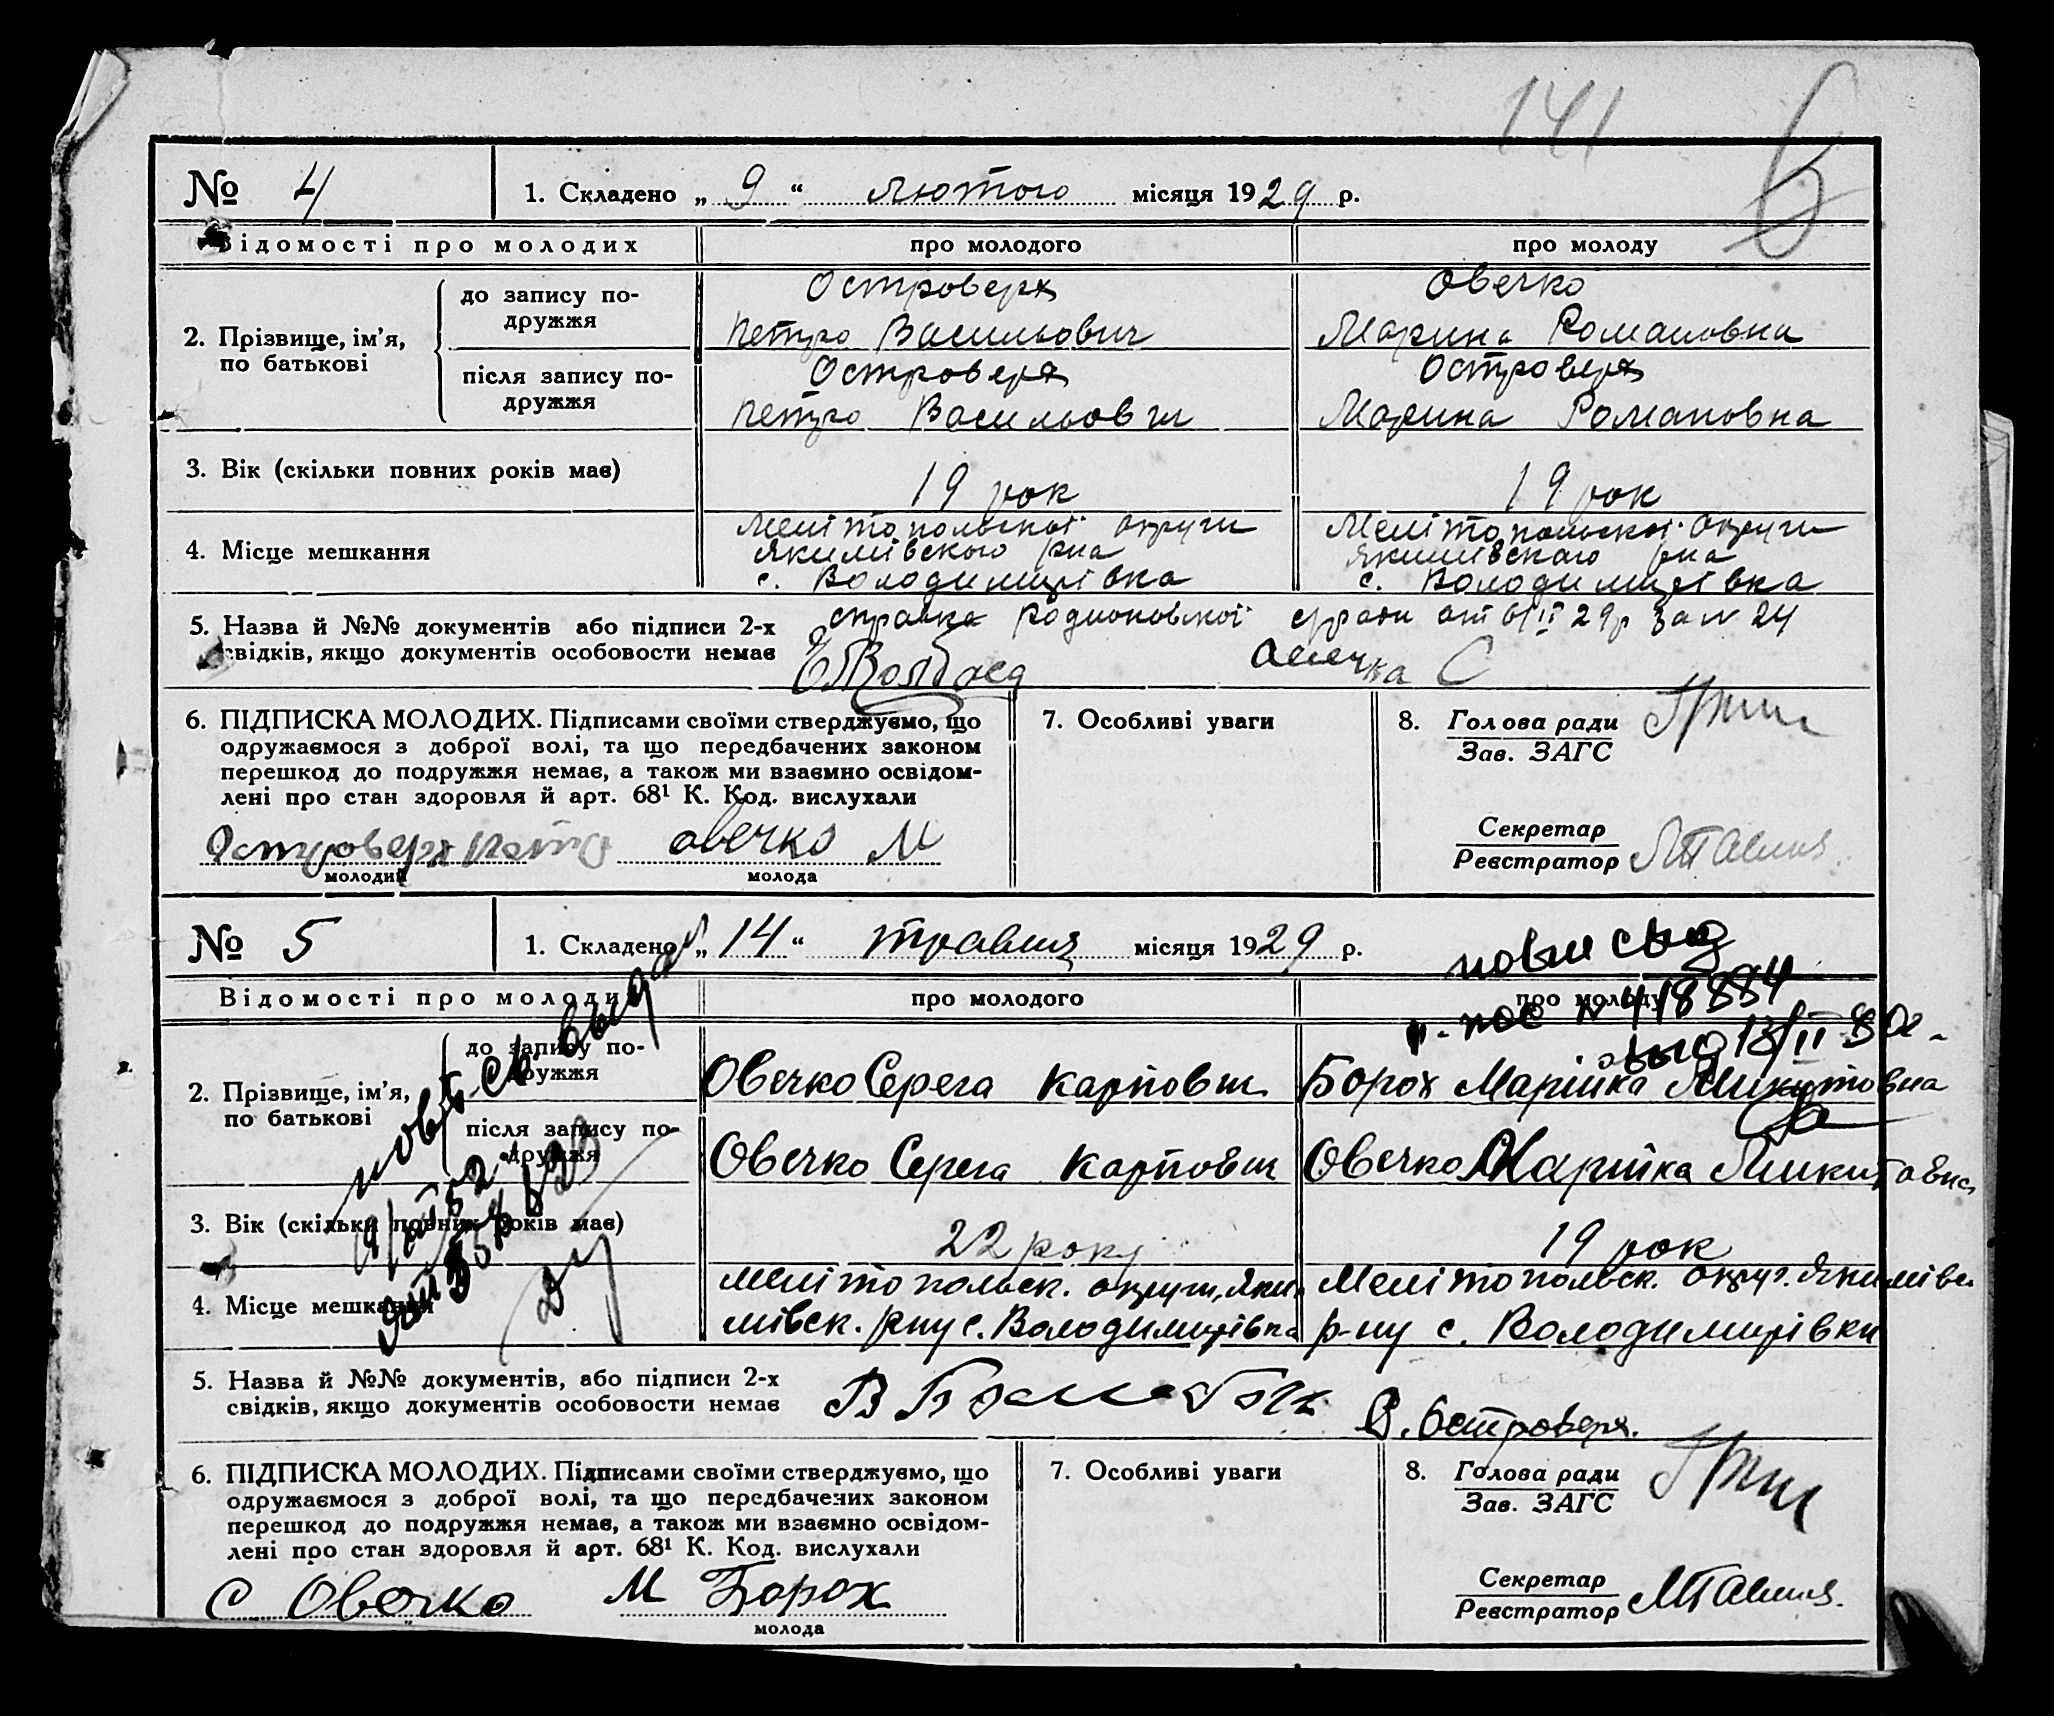 141
№ 4
1. Складено „ 9 “ лютого місяця 1929 р.
Відомості про молодих
про молодого
про молоду
2. Прізвище, ім’я,
по батькові
до запису по-
дружжя
Островерх
Петро Васильович
Овечко
Марина Романовна
після запису по-
дружжя
Островерх
Петро Васильович
Островерх
Марина Романовна
3. Вік (скільки повних років має)
19 рок
19 рок
4. Місце мешкання
Мелітопольскої округи
Якимівского рна
с. Володимирівка
Мелітопольскої округи
Якимівскаго рна
с. Володимирівка
5. Назва й №№ документів або підписи 2-х
свідків, якщо документів особовости немає
справка Родионовскої сради от 6/II 29р за № 24
6. ПІДПИСКА МОЛОДИХ. Підписами своїми стверджуємо, що
одружаємося з доброї волі, та що передбачених законом
перешкод до подружжя немає, а також ми взаємно освідом-
лені про стан здоровля й арт. 68¹ К. Код. вислухали
Островерх Петро
овечко М
молодий
молода
7. Особливі уваги
8. Голова ради
Зав. ЗАГС
Секретар
Реєстратор
№ 5
1. Складено „ 14 “ травня місяця 1929 р.
Відомості про молодих
про молодого
про молоду
N 418884
13/II
2. Прізвище, ім’я,
по батькові
до запису по-
дружжя
Овечко Серега Карпович
Борох Марійка Микитовна
після запису по-
дружжя
Овечко Серега Карпович
Овечко Марійка Микитовна
3. Вік (скільки повних років має)
22 року
19 рок
4. Місце мешкання
Мелітопольск. округи, Яки-
мівск. рну с. Володимирівка
Мелітопольск. округ. Якимівск
р-ну с. Володимирівки
5. Назва й №№ документів, або підписи 2-х
свідків, якщо документів особовости немає
В. Островерх.
6. ПІДПИСКА МОЛОДИХ. Підписами своїми стверджуємо, що
одружаємося з доброї волі, та що передбачених законом
перешкод до подружжя немає, а також ми взаємно освідом-
лені про стан здоровля й арт. 68¹ К. Код. вислухали
С Овечко
М Борох
молода
7. Особливі уваги
8. Голова ради
Зав. ЗАГС
Секретар
Реєстратор